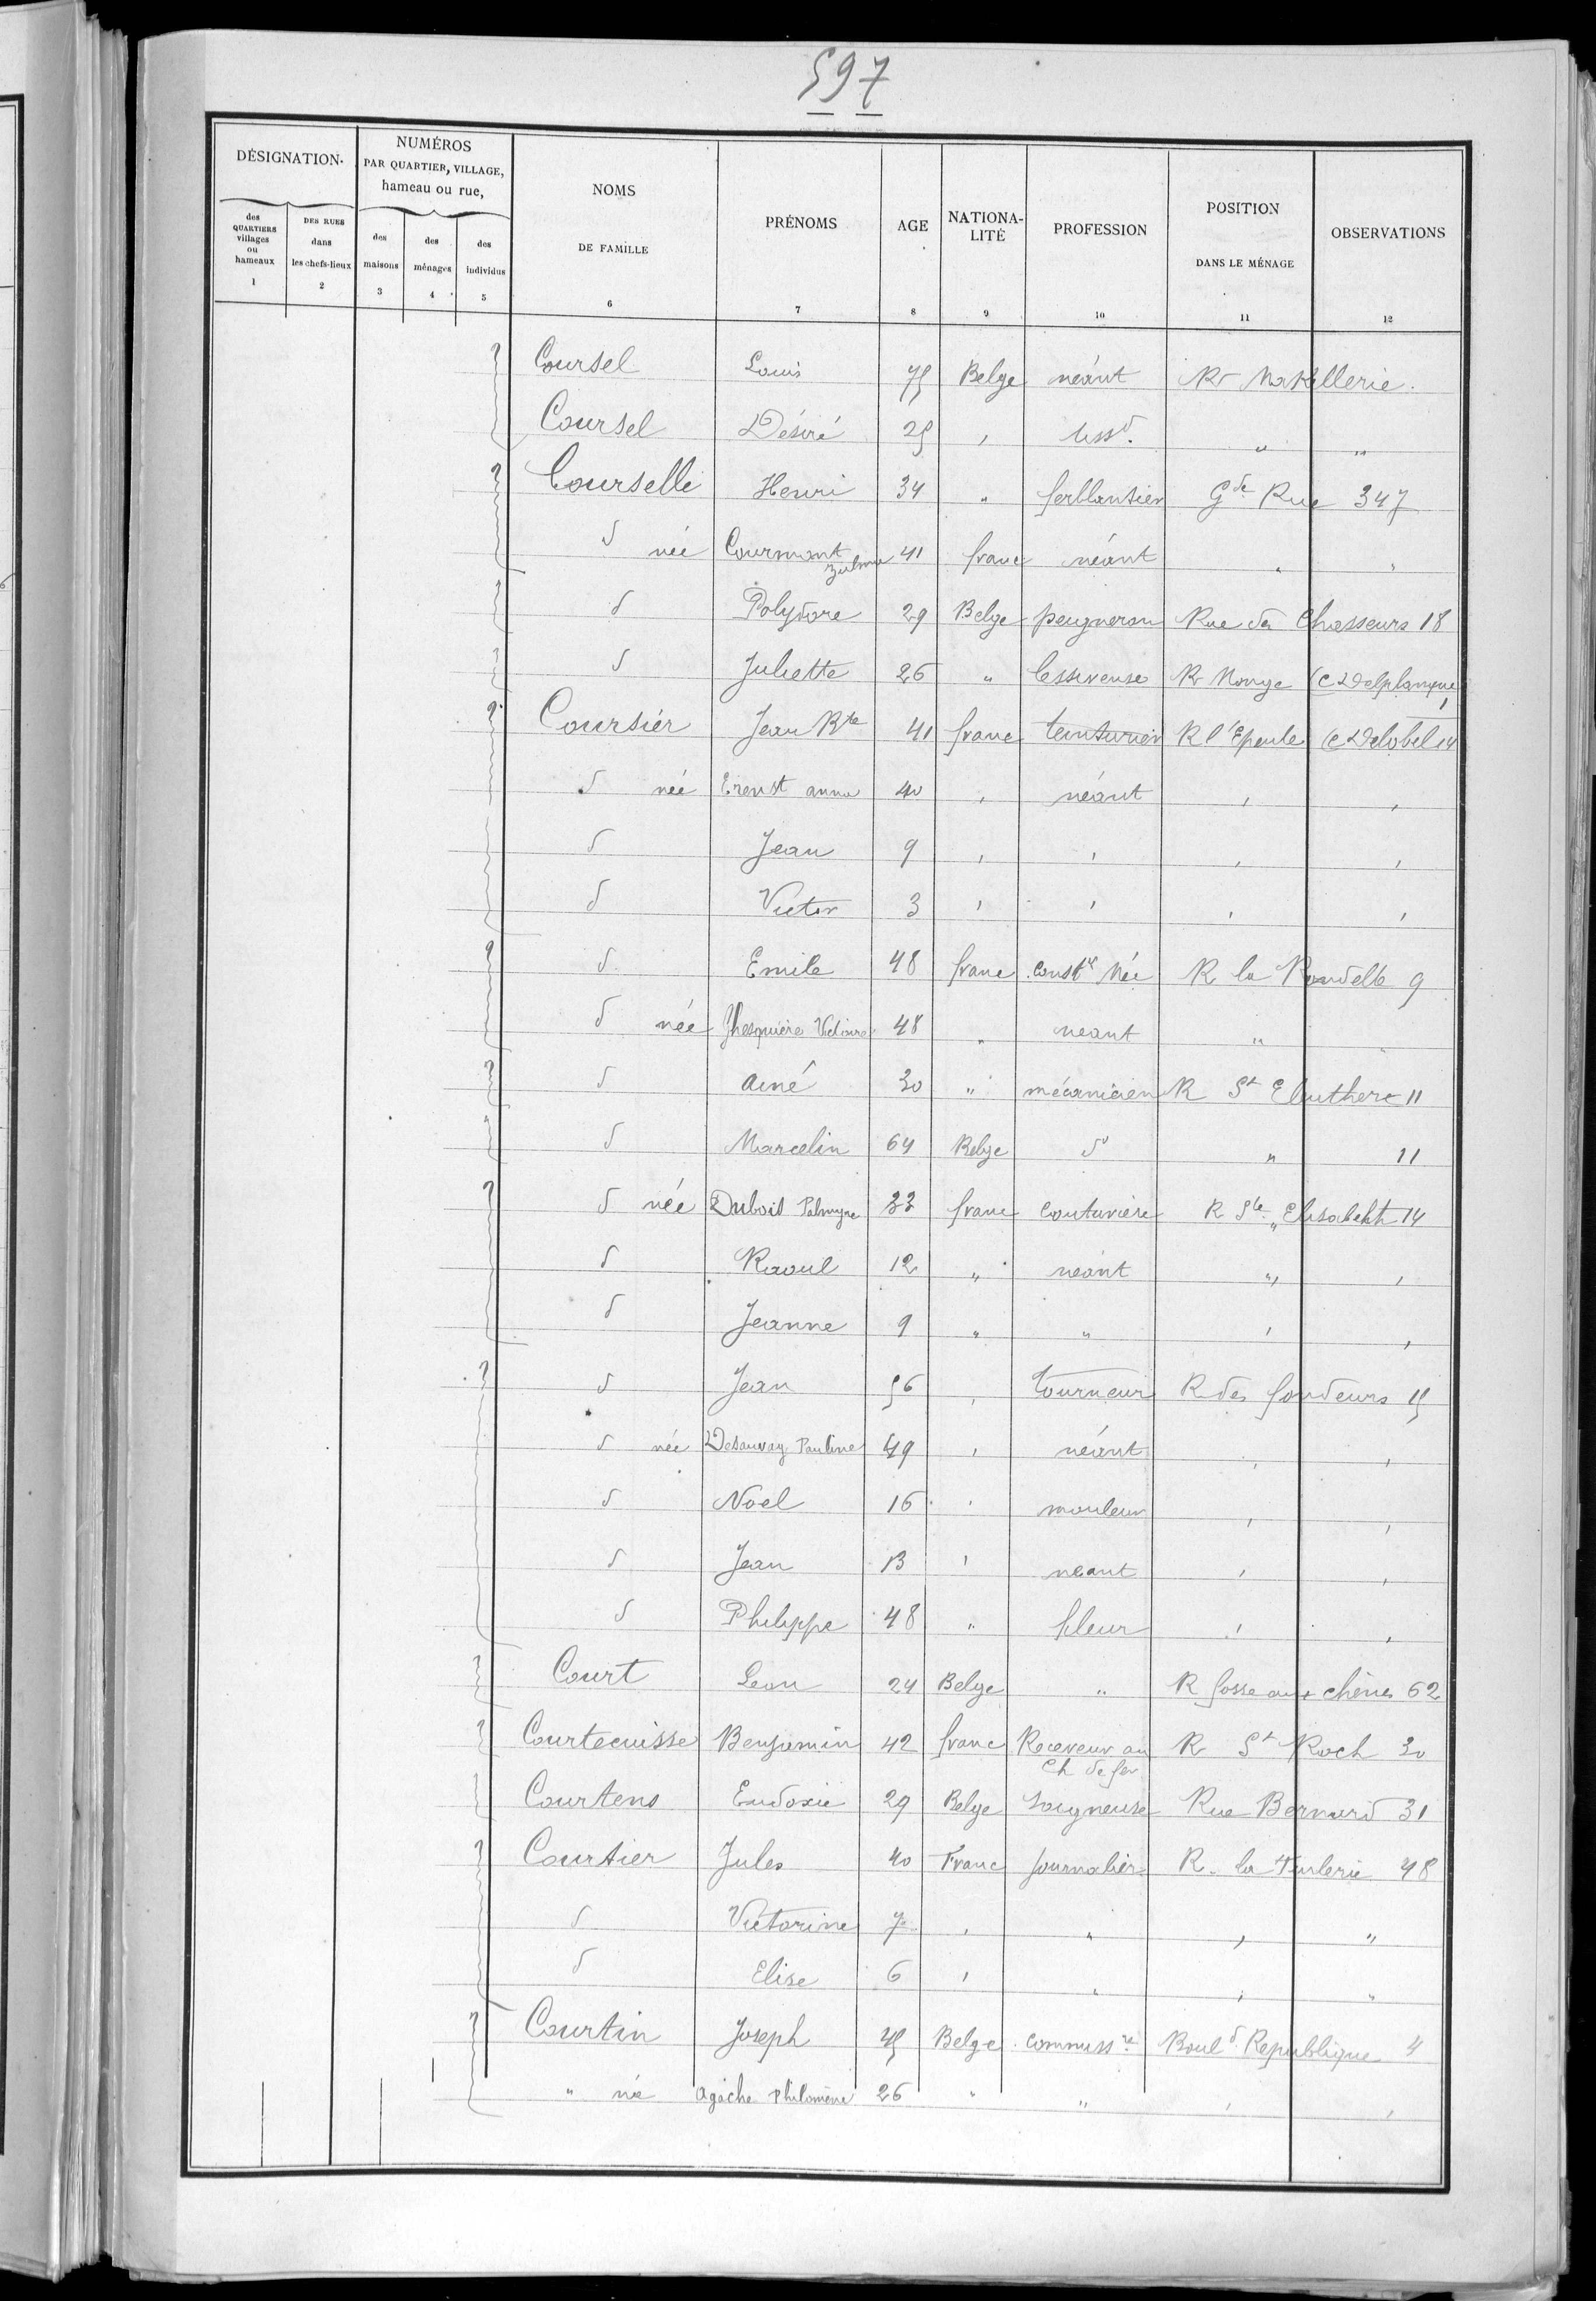 597
DÉSIGNATION
NUMÉROS
PAR QUARTIER, VILLAGE,
hameau ou rue,
des QUARTIERS villages ou hameaux 1
DES RUES dans les chefs-lieux 2
des maisons 3
des ménages 4
des individus 5
NOMS DE FAMILLE 6
PRÉNOMS 7
AGE 8
NATIONA-LITÉ 9
PROFESSION 10
POSITION DANS LE MÉNAGE 11
OBSERVATIONS 12
Coursel Louis 75 Belge néant R
Coursel Désiré 25 " tissd. " "
Courselle Henri 34 " ferblantier Gde Rue 347
d née Courmont Zulma 41 franc néant " "
d Polydore 29 Belge peigneron Rue des Chasseurs 18
d Juliette 26 " lessiveuse R Monge (C Delplanque
Coursier Jean Bte 41 franc teinturier R l'Epeule (C Delobel 14
d née Erenst anna 40 " néant " "
d Jean 9 " " " "
d Victor 3 " " " "
d Emile 48 franc constr Méc R la Rondelle 9
d née Ghesquière Victoire 48 " neant "
d Aimé 30 " mécanicien R St Eleuthere 11
d Marcelin 64 Belge d " 11
d née Dubois Palmyre 33 franc couturière R Ste Elisabeht 14
d Raoul 12 " néant " "
d Jeanne 9 " " " "
d Jean 56 " tourneur R des fondeurs 15
d née Desauvay Pauline 49 " néant " "
d Noel 16 " mouleur " "
d Jean 13 " neant " "
d Philippe 48 " fileur " "
Court Leon 24 Belge " R fosse aux chênes 62
Courtecuisse Benjamin 42 franc Receveur au Ch de fer R St Roch 30
Courtens Eudoxie 29 Belge Soigneuse Rue Bernard 31
Courtier Jules 40 Franc journalier R. la Tuilerie 48
d Victorine 7 " " " "
d Elise 6 " " " "
Courtin Joseph 45 Belge commissre Bould Republique 4
" née Agache Philomène 26 " " " "